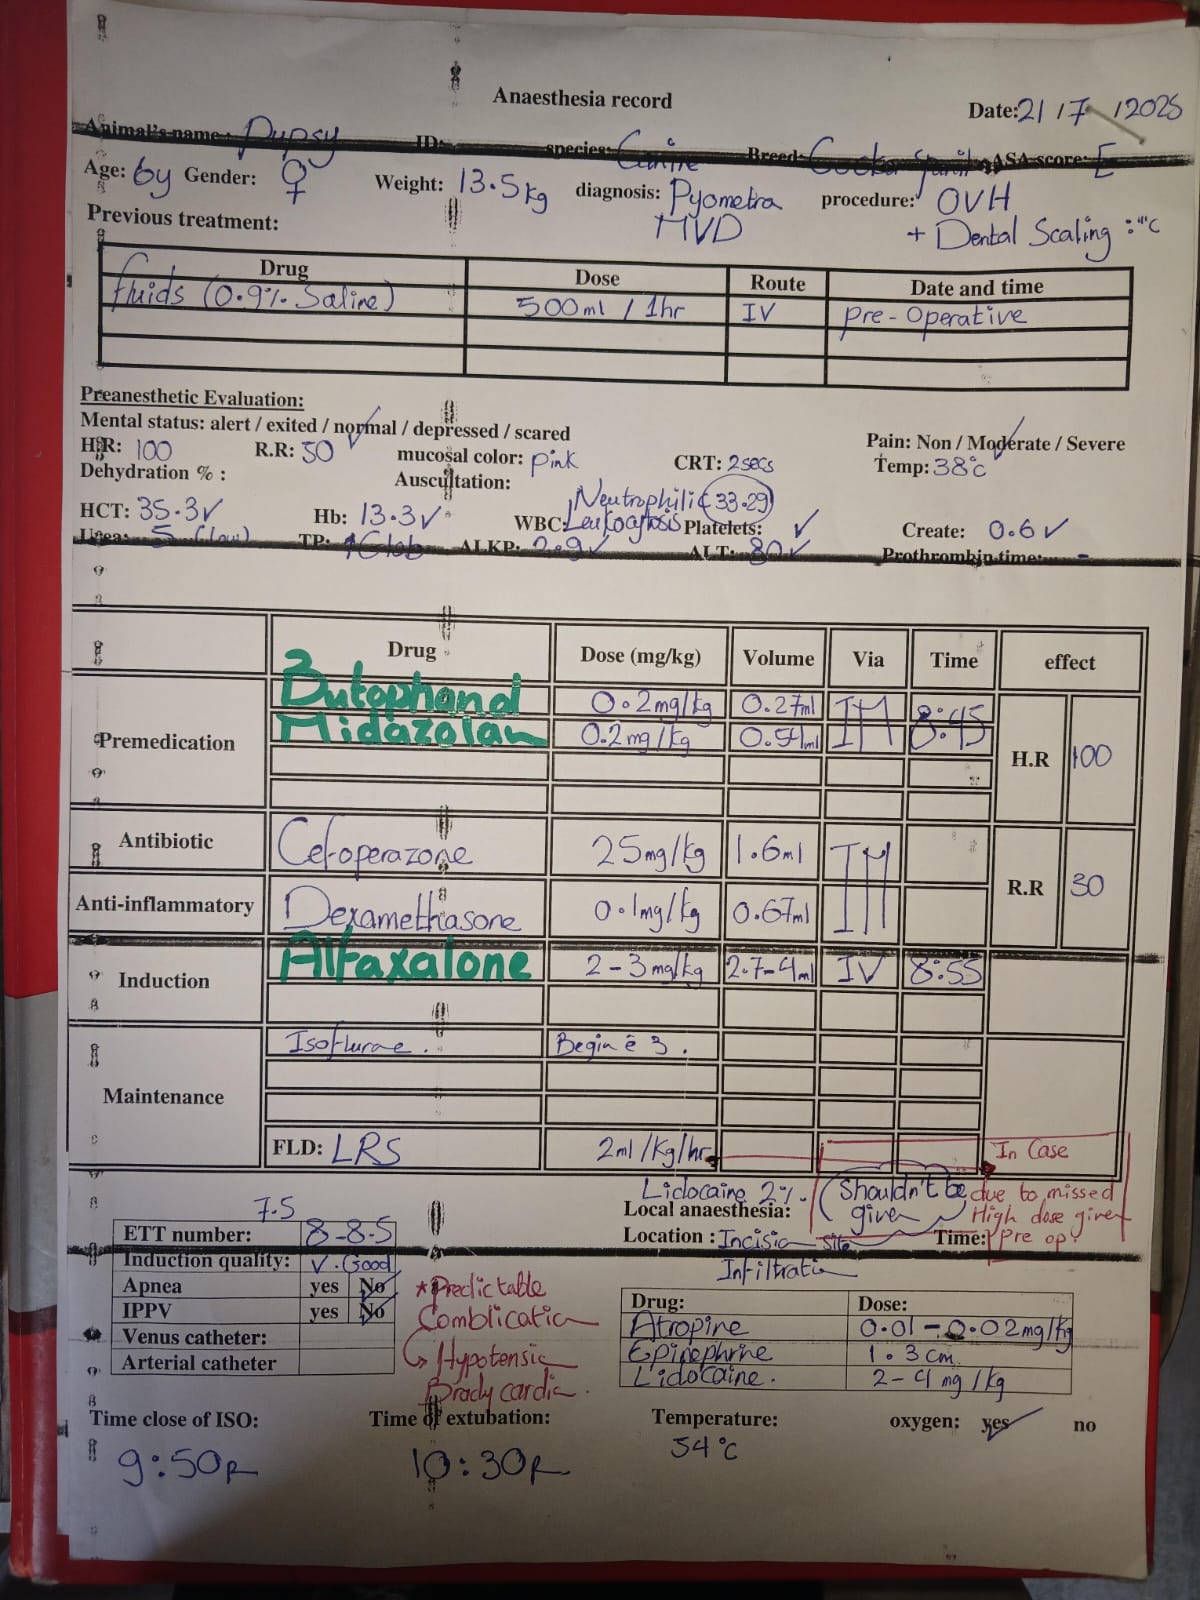 Anaesthesia record
Date: 21 / 7 / 2025
Animal's name: Pupsy ID: species: Canine Breed: Cocker Spaniel ASA score: E
Age: 6y Gender: ♀ Weight: 13.5kg diagnosis: Pyometra procedure: OVH
MVD + Dental Scaling
Previous treatment:
Drug Dose Route Date and time
fluids (0.9% Saline) 500ml / 1hr IV pre-operative
Preanesthetic Evaluation:
Mental status: alert / exited / normal ✓ / depressed / scared Pain: Non / Moderate ✓ / Severe
H.R: 100 R.R: 30 mucosal color: pink CRT: 2secs Temp: 38°C
Dehydration % : Auscultation:
Neutrophilic 33.29
HCT: 35.3 ✓ Hb: 13.3 ✓ WBC: Leukocytosis Platelets: ✓ Create: 0.6 ✓
Urea: 5 (low) TP: ↑Glob ALKP: 2.9 ✓ ALT: 80 ✓ Prothrombin time: -
Drug Dose (mg/kg) Volume Via Time effect
Premedication Butophanol 0.2mg/kg 0.27ml IM 8:45 H.R 100
Midazolam 0.2mg/kg 0.54ml
Antibiotic Cefoperazone 25mg/kg 1.6ml IM R.R 30
Anti-inflammatory Dexamethasone 0.1mg/kg 0.67ml
Induction Alfaxalone 2-3mg/kg 2.7-4ml IV 8:55
Maintenance Isoflurane. Begin c 3.
FLD: LRS 2ml/kg/hr In Case
Lidocaine 2%. (Shouldn't be given) due to missed
Local anaesthesia: High dose given
Location: Incision site Time: pre op
Infiltration
7.5
ETT number: 8-8.5
Induction quality: V.Good
Apnea yes No ✓
IPPV yes No ✓
Venus catheter:
Arterial catheter
*Predictable
Comblication
↳ Hypotensia
Bradycardia.
Drug: Dose:
Atropine 0.01-0.02mg/kg
Epinephrine 1.3cm
Lidocaine. 2-4mg/kg
Time close of ISO: Time of extubation: Temperature: oxygen: yes ✓ no
9:50 10:30 34°C